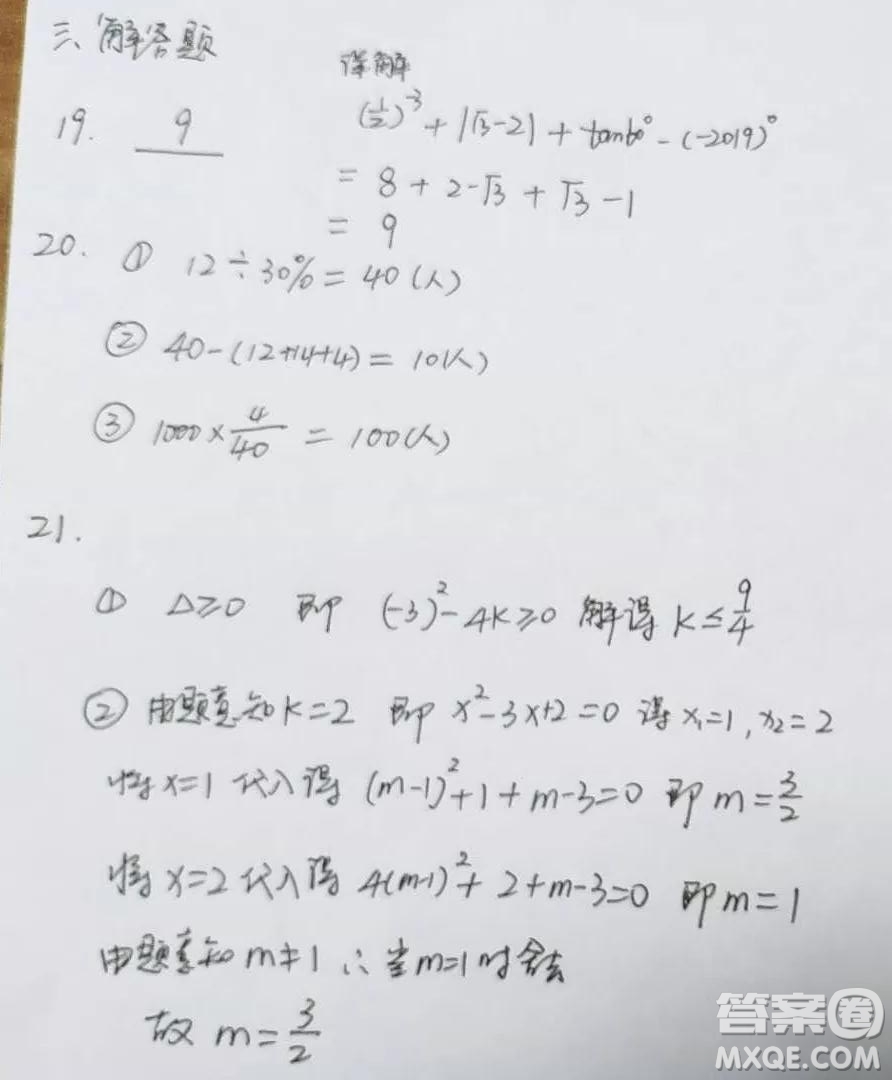 三、解答题
详解
19. 9
(1/2)^-3 + |√3-2| + tan60° - (-2019)^0
= 8 + 2-√3 + √3 -1
= 9
20. ① 12÷30%=40(人)
② 40-(12+14+4)=10(人)
③ 1000×4/40 = 100(人)
21.
① Δ≥0 即 (-3)^2-4K≥0 解得 K≤9/4
② 由题意知K=2 即 x^2-3x+2=0 得 x₁=1, x₂=2
将x=1代入得 (m-1)^2+1+m-3=0 即 m=3/2
将x=2代入得 4(m-1)^2+2+m-3=0 即m=1
由题意知 m≠1 ∴当m=1时舍去
故 m=3/2
答案圈
MXQE.COM